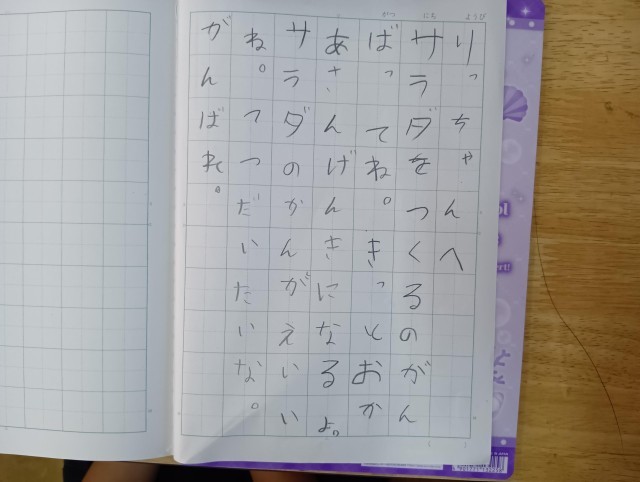 がつ にち ようび
りっちゃんへ
サラダをつくるのがん
ばってね。きっとおか
あさんげんきになるよ。
サラダのかんがえいい
ね。てつだいたいな。
がんばれ。